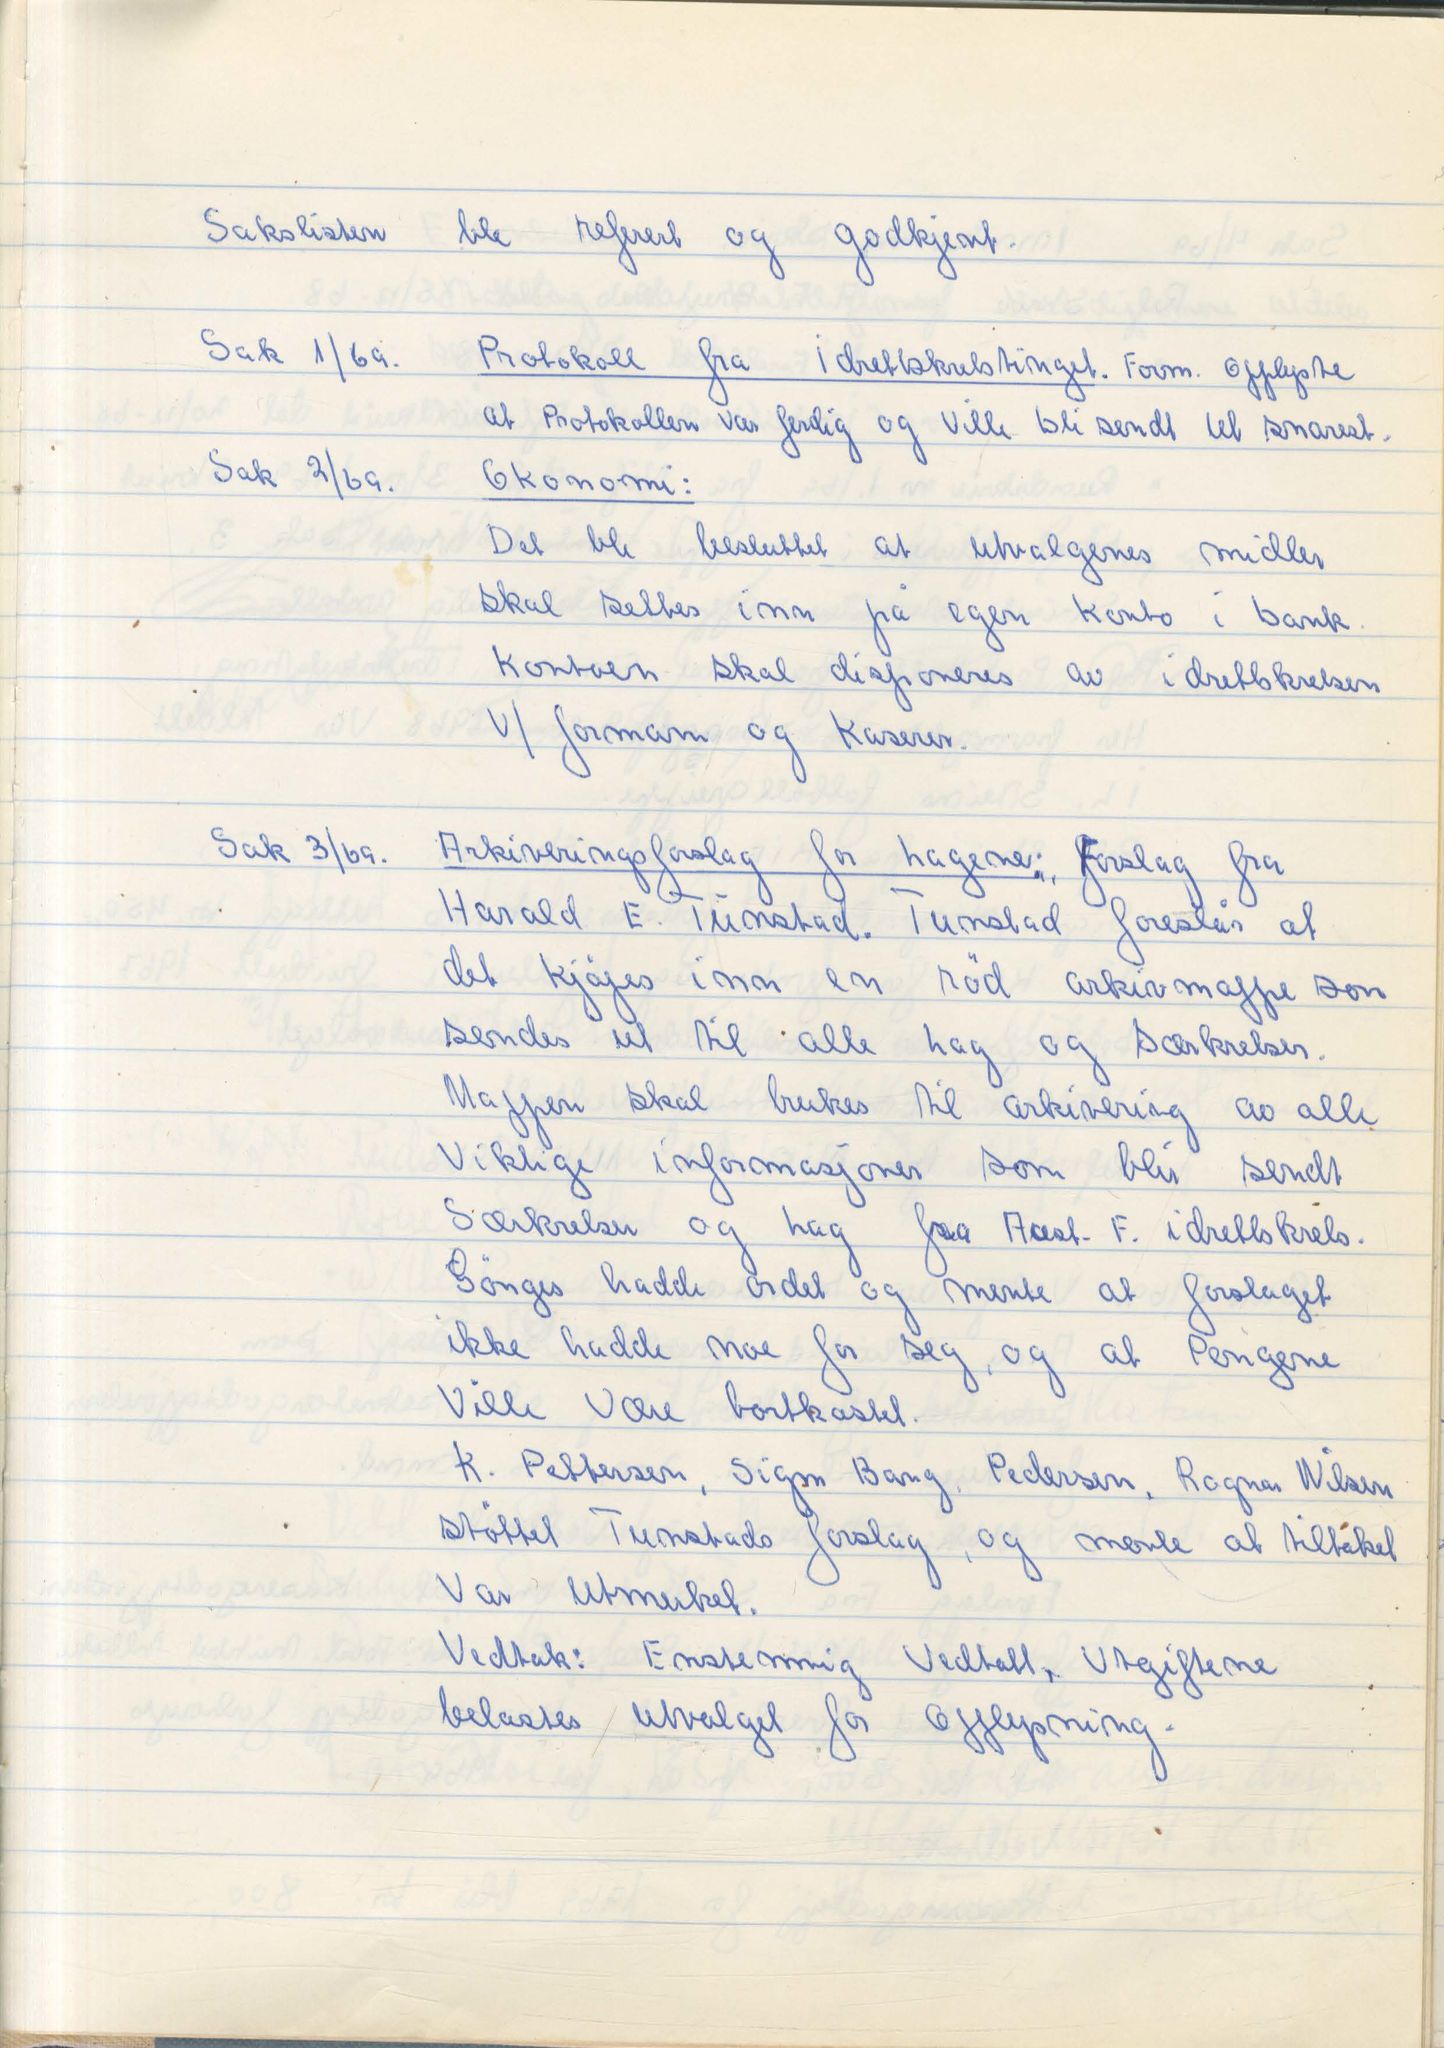 Sakslisten ble referert og godkjent.
Sak 1/69. Protokoll fra idrettskretstinget. Form. opplyste
at Protokollen var ferdig og ville bli sendt ut snarest.
Sak 2/69. Økonomi:
Det ble besluttet at utvalgenes midler
skal settes inn på egen konto i bank.
Kontoen skal disponeres av idrettskretsen
V/ formann og Kaserer.
Sak 3/69. Arkiveringsforslag for lagene: Forslag fra
Harald E. Tunstad. Tunstad foreslår at
det kjöpes inn en röd arkivmappe som
sendes ut til alle lag og Særkretser.
Mappen skal brukes til arkivering av alle
Viktige informasjoner som blir sendt
Særkretser og lag fra Aust-F. idrettskrets.
Gönges hadde ordet og mente at forslaget
ikke hadde noe for seg, og at Pengene
Ville være bortkastet.
K. Pettersen, Sigm Bang. Pedersen, Ragnar Nilsen
støttet Tunstads forslag, og mente at tiltaket
Var Utmerket.
Vedtak: Enstemmig Vedtatt, Utgiftene
belastes utvalget for Opplysning.